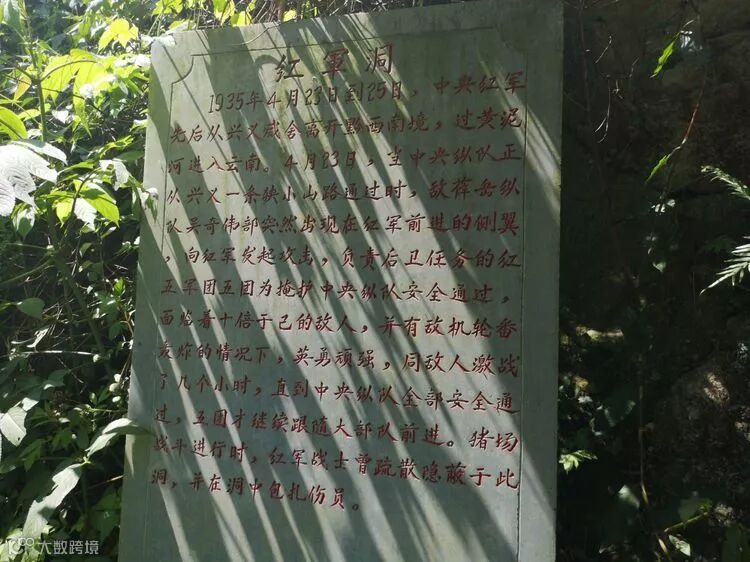 红军洞
1935年4月23日到25日，中央红军
先后从兴义威舍离开黔西南境，过黄泥
河进入云南。4月23日，当中央纵队正
从兴义一条狭小山路通过时，敌薛岳纵
队吴奇伟部突然出现在红军前进的侧翼
，向红军发起攻击，负责后卫任务的红
五军团五团为掩护中央纵队安全通过，
面临着十倍于己的敌人，并有敌机轮番
轰炸的情况下，英勇顽强，同敌人激战
了几个小时，直到中央纵队全部安全通
过，五团才继续跟随大部队前进。猪场
战斗进行时，红军战士曾疏散隐蔽于此
洞，并在洞中包扎伤员。
大数跨境